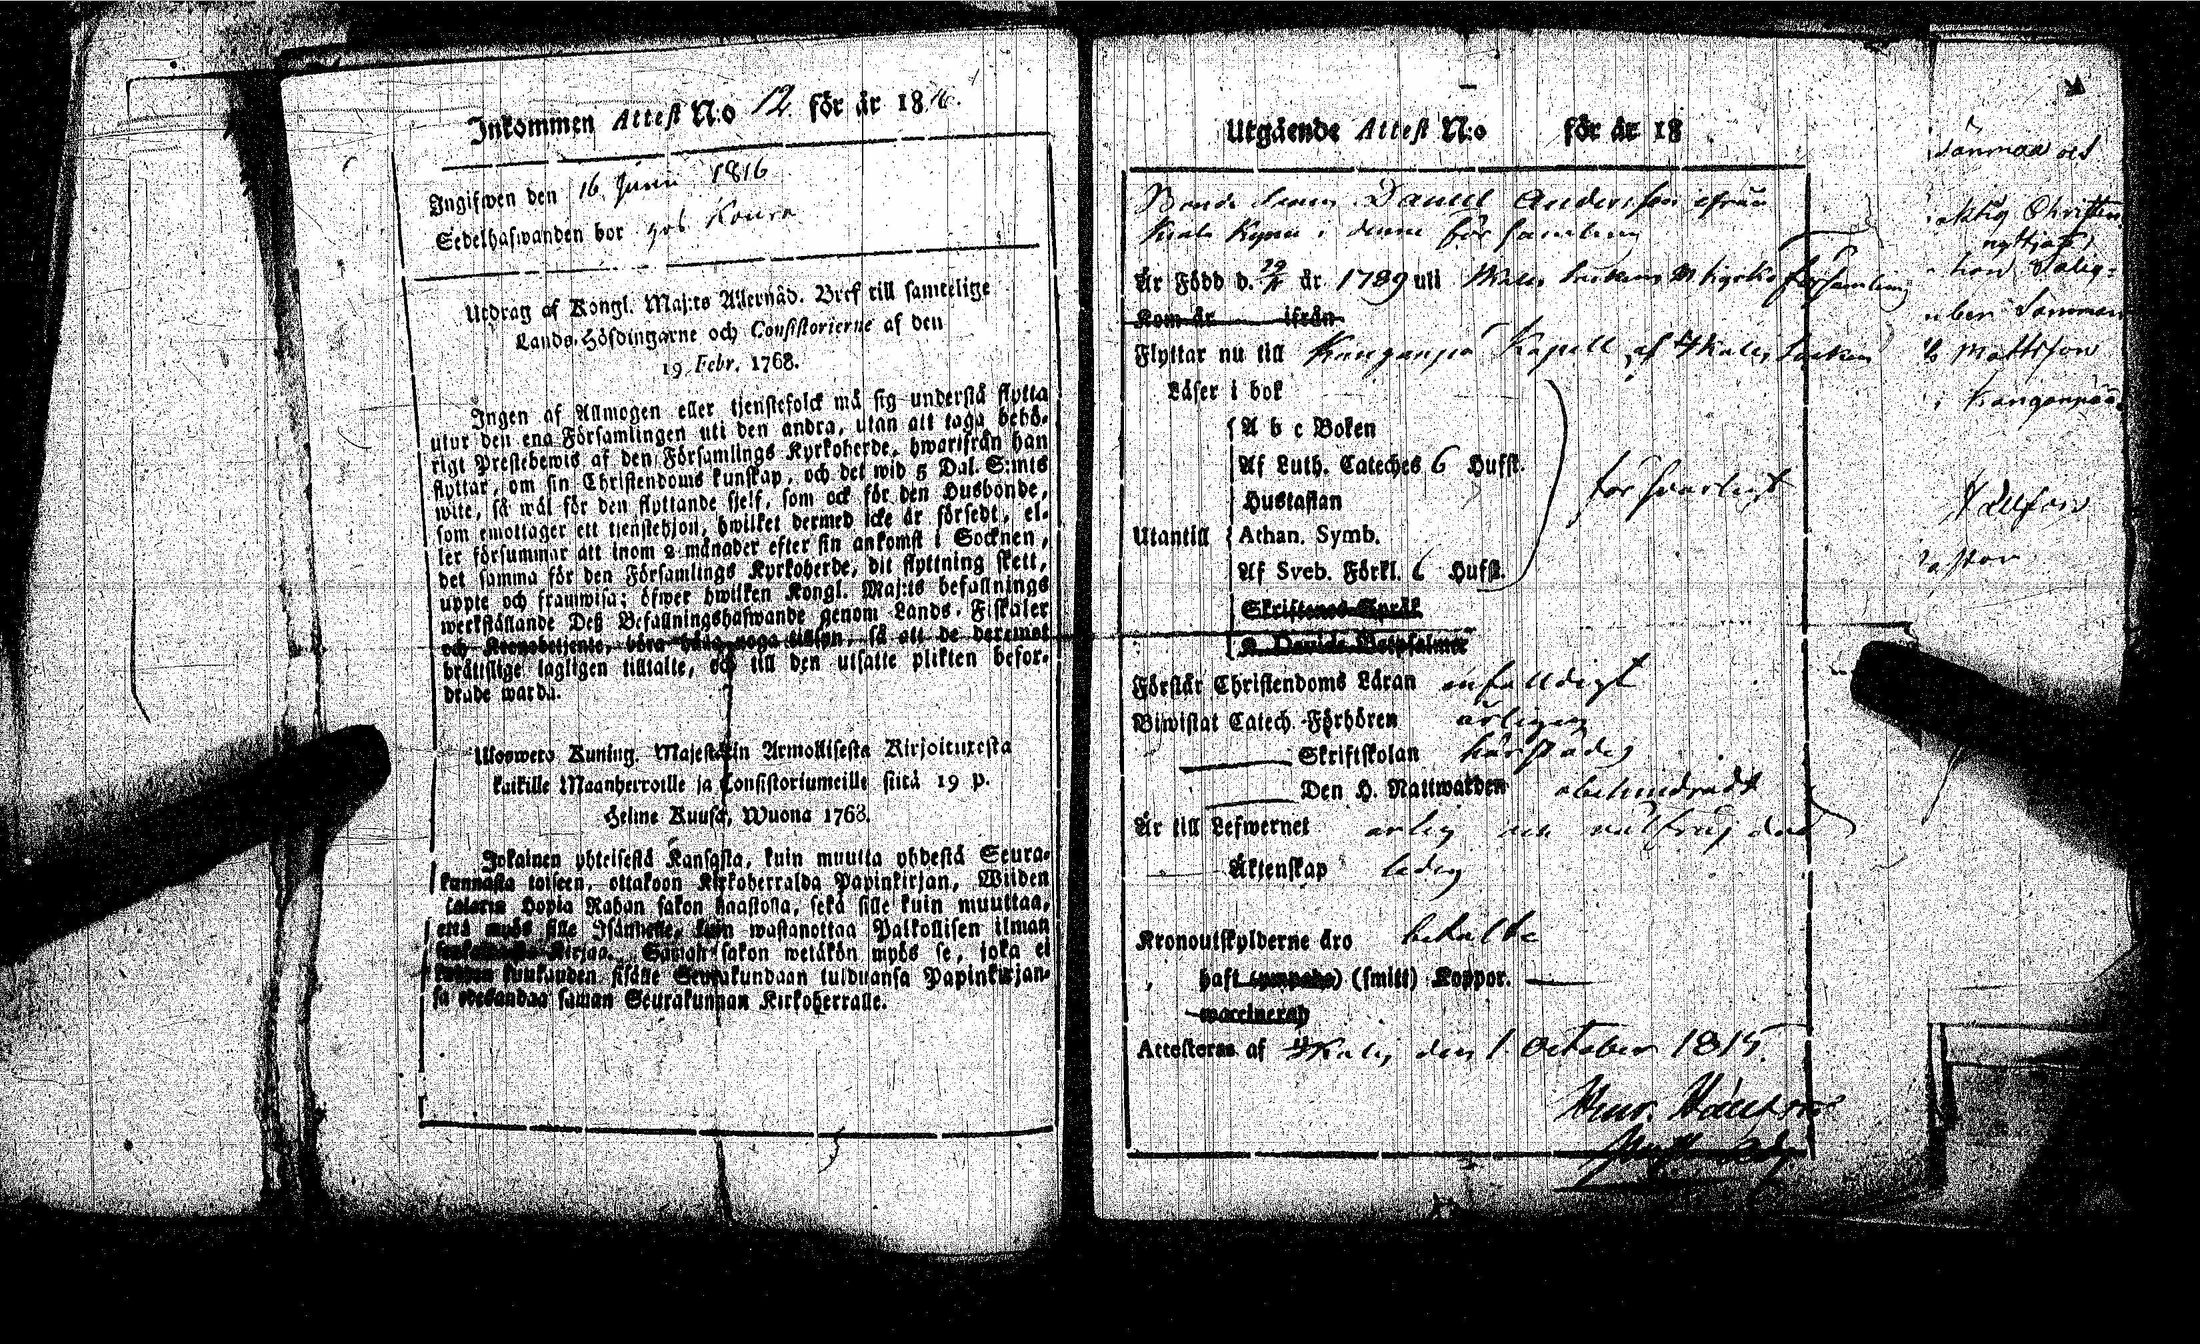 Inkommen Attest N:o 12. för år 1816.
Ingifwen den 16 Junii 1816
Sedelhafwanden bor hos Koura
Utdrag af Kongl. Maj:ts Allernåd. Bref till samtelige
Lands-Höfdingarne och Consistorierne af den
19 Febr. 1768.
Ingen af Allmogen eller tjenstefolck må sig understå flytta
utur den ena Församlingen uti den andra, utan att taga behö-
rigt Prestebewis af den Församlings Kyrkoherde, hwarifrån han
flyttar, om sin Christendoms kunskap, och det wid 5 Dal. S:mts
wite, så wäl för den flyttande sjelf, som ock för den Husbonde,
som emottager ett tienstehjon, hwilket dermed icke är försedt, el-
ler försummar att inom 2 månader efter sin ankomst i Socknen,
det samma för den Församlings Kyrkoherde, dit flyttning skett,
uppte och framwisa; öfwer hwilken Kongl. Maj:ts befallnings
werkställande Deß Befallningshafwande genom Lands-Fiskaler
och Kronobetjente, böra hafwa noga tillsyn, så att de deremot
bråttslige lagligen tilltalte, och till den utsatte plikten befor-
drade warda.
Uloswero Kuning. Majestätin Armollisesta Kirjoituxesta
kaikille Maanherroille ja Consistoriumeille siitä 19 p.
Helme Kuusa, Wuona 1768.
Jokainen yhteisestä Kansasta, kuin muutta yhdestä Seura-
kunnasta toiseen, ottakoon Kirkoherralda Papinkirjan, Wiiden
talarin Hopia Rahan sakon haastolla, sekä sille kuin muuttaa,
että myös sille Isännelle, kuin wastanottaa Palkollisen ilman
Kirjaa. Saman sakon wetäkön myös se, joka ei
kuukauden sisälle Seurakundaan tulduansa Papinkirjan-
sa saman Seurakunnan Kirkoherralle.
Utgående Attest N:o för år 18
Bonde Sonen Daniel Andersson ifrån
Kyrö i denne församling
Är Född d. 19/ år 1789 uti församling
Kom år ifrån
Flyttar nu till Kanganpä Kapell af Socken
Läser i bok
A b c Boken
Af Luth. Cateches 6 Hufst.
Hustaflan
försvarligt
Utantill Athan. Symb.
Af Sveb. Förkl. 6 Hufst.
Skriftenes Språk
K. Davids Botpsalmer
Förstår Christendoms Läran enfalldigt
Biwistat Catech. Förhören årligen
Skriftskolan härstädes
Den H. Nattwarden obehindradt
Är till Lefwernet ärlig och
Äktenskap ledig
Kronoutskylderne äro betalte
haft (ympade) (smitt) Koppor.
waccinerad
Attesteras af den 1 October 1815.
Mattsson
i Kanganpää